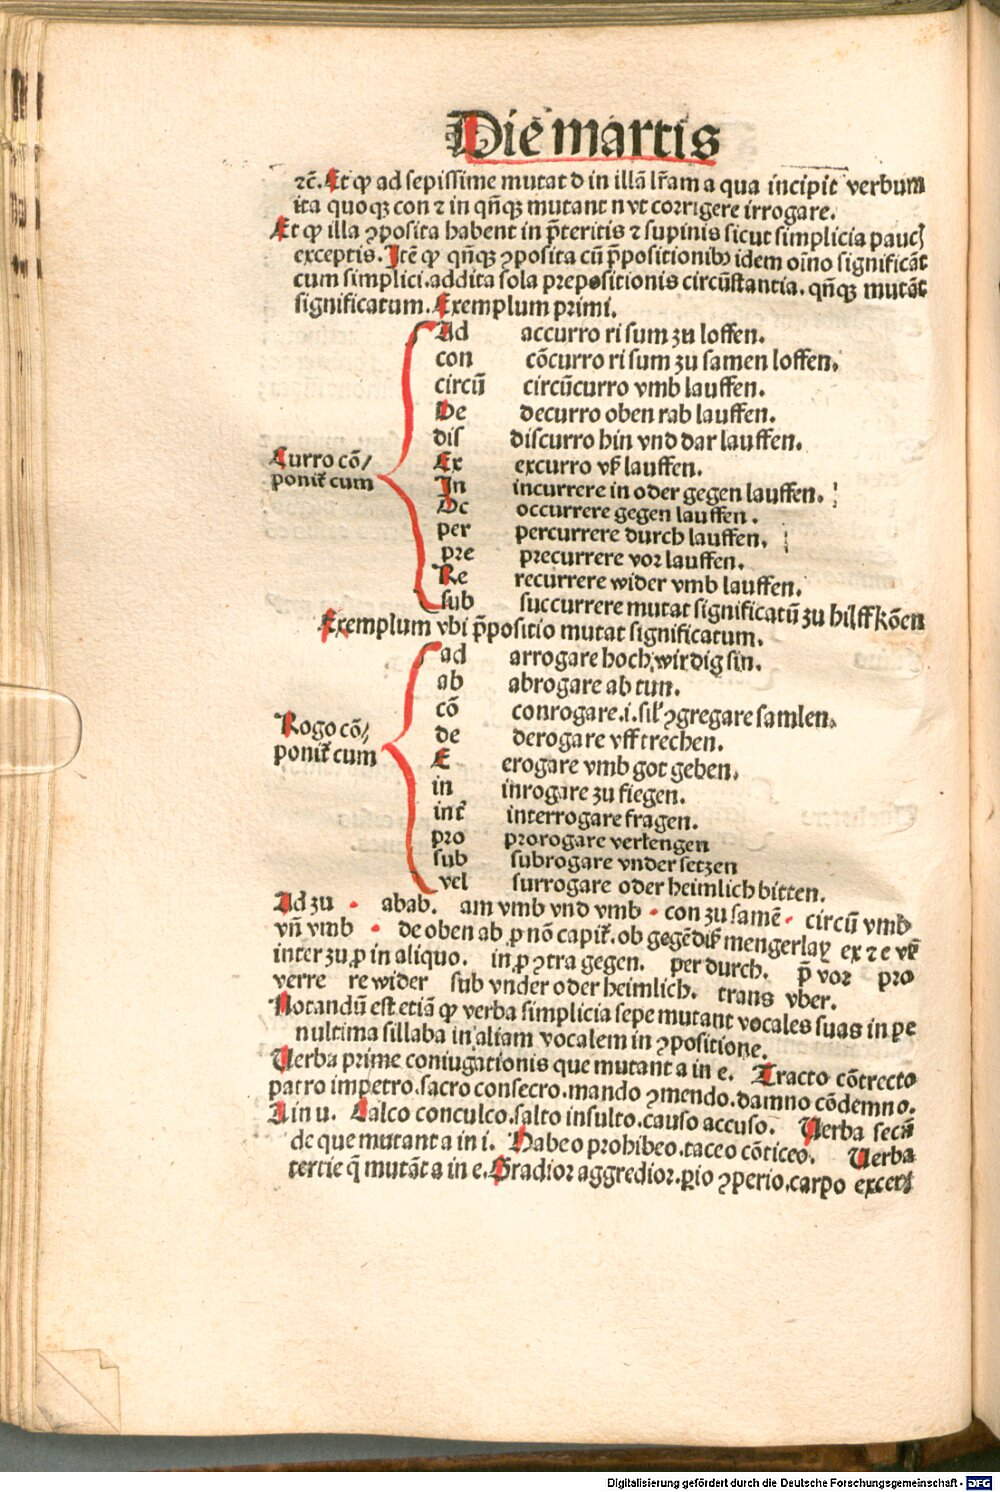 Die martis
⁊c̄. Et ꝙ ad sepissime mutat d in illā lr̄am a qua incipit verbum
ita quoqꝫ con ⁊ in qn̄qꝫ mutant n vt corrigere irrogare.
Et ꝙ illa ꝯposita habent in p̄teritis ⁊ supinis sicut simplicia paucꝭ
exceptis. Itē ꝙ qn̄qꝫ ꝯposita cū p̄positionibꝰ idem oīno significāt
cum simplici.addita sola prepositionis circūstantia. qn̄qꝫ mutāt
significatum. Exemplum primi.
Ad accurro ri sum zu loffen.
con cōcurro ri sum zu samen loffen.
circū circūcurro vmb lauffen.
De decurro oben rab lauffen.
dis discurro hin vnd dar lauffen.
Curro cō/
ponit̄ cum
Ex excurro vß lauffen.
In incurrere in oder gegen lauffen.
Oc occurrere gegen lauffen.
per percurrere durch lauffen.
pre precurrere vor lauffen.
Re recurrere wider vmb lauffen.
sub succurrere mutat significatū zu hilff kōen
Exemplum vbi p̄positio mutat significatum.
ad arrogare hoch wirdig sin.
ab abrogare ab tun.
cō conrogare.i.sil̄ ꝯgregare samlen.
Rogo cō/
ponit̄ cum
de derogare vff trechen.
E erogare vmb got geben.
in inrogare zu fiegen.
int̄ interrogare fragen.
pro prorogare verlengen
sub subrogare vnder setzen
vel surrogare oder heimlich bitten.
Ad zu • abab. am vmb vnd vmb • con zu samē • circū vmb
vn̄ vmb • de oben ab ꝑ nō capit̄. ob gegē dik̄ mengerlay ex ⁊ e vß
inter zu ꝑ in aliquo. in ꝑ ꝯtra gegen. per durch. p̄ vor pro
verre re wider sub vnder oder heimlich. trans vber.
Notandū est etiā ꝙ verba simplicia sepe mutant vocales suas in pe
nultima sillaba in aliam vocalem in ꝯpositione.
Uerba prime coniugationis que mutant a in e. Tracto cōtrecto
patro impetro.sacro consecro.mando ꝯmendo.damno cōdemno.
A in u. Calco conculco.salto insulto.causo accuso. Uerba secū
de que mutant a in i. Habeo prohibeo.taceo cōticeo. Uerba
tertie q̄ mutāt a in e. Gradior aggredior.ꝑio ꝯperio.carpo excerꝑ
Digitalisierung gefördert durch die Deutsche Forschungsgemeinschaft - DFG